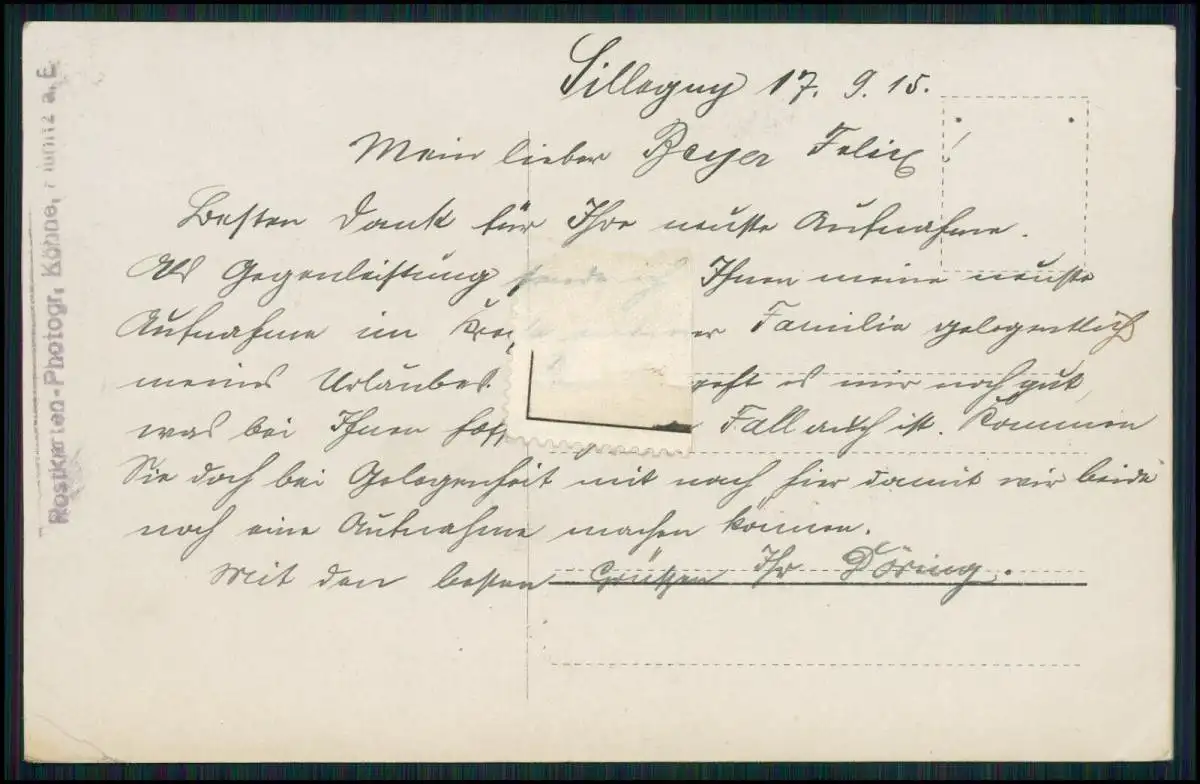 Sillegny 17. 9. 15.
Mein lieber Beyer Felix!
Besten Dank für Ihre neuste Aufnahme.
Als Gegenleistung sende ich Ihnen meine neuste
Aufnahme im Kreise meiner Familie gelegentlich
meines Urlaubes. geht es mir noch gut,
was bei Ihnen Fall auch ist. Kommen
Sie doch bei Gelegenheit mit nach hier damit wir beide
noch eine Aufnahme machen können.
Mit den besten Grüßen Ihr Döring.
Postkarten-Photogr.